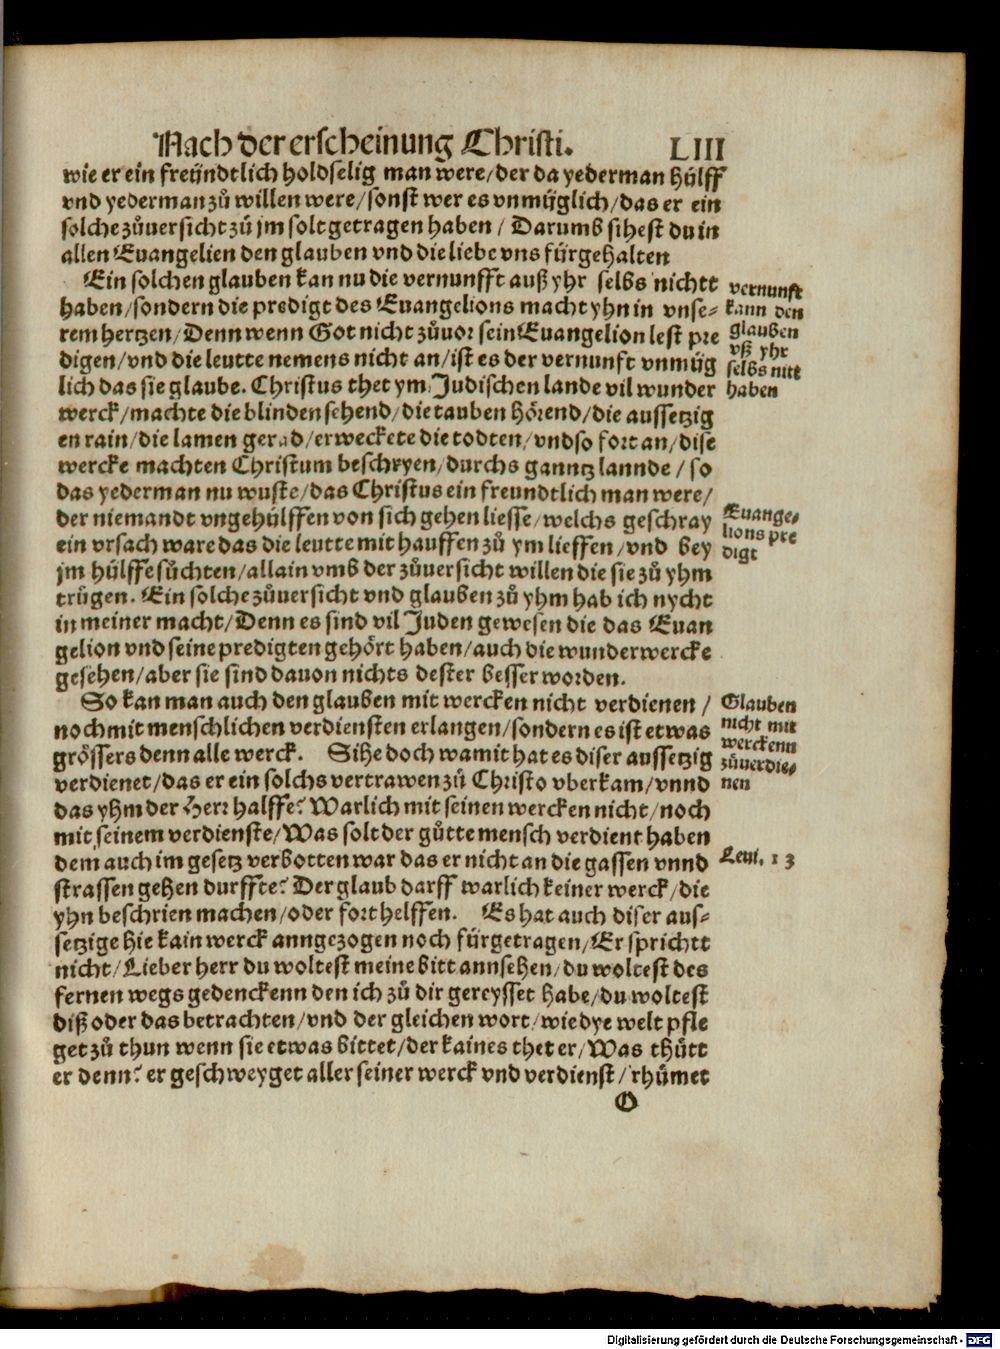 Nach der erscheinung Christi. LIII
wie er ein freündtlich holdselig man were/der da yederman hülff
vnd yederman zů willen were/sonst wer es vnmüglich/das er ein
solche zůuersicht zů jm solt getragen haben / Darumb sihest du in
allen Euangelien den glauben vnd die liebe vns fürgehalten
Ein solchen glauben kan nu die vernunfft auß yhr selbs nichtt
haben/sondern die predigt des Euangelions macht yhn in vnse-
rem hertzen/Denn wenn Got nicht zůuor sein Euangelion lest pre
digen/vnd die leutte nemens nicht an/ist es der vernunft vnmüg
lich das sie glaube. Christus thet ym Judischen lande vil wunder
werck/machte die blinden sehend/die tauben hörend/die aussetzig
en rain/die lamen gerad/erweckete die todten/vnd so fort an/dise
wercke machten Christum beschryen/durchs ganntz lannde / so
das yederman nu wuste/das Christus ein freundtlich man were/
der niemandt vngehülffen von sich gehen liesse/welchs geschray
ein vrsach ware das die leutte mit hauffen zů ym lieffen/vnd bey
jm hülffe sůchten/allain vmb der zůuersicht willen die sie zů yhm
trůgen. Ein solche zůuersicht vnd glauben zů yhm hab ich nycht
in meiner macht/Denn es sind vil Juden gewesen die das Euan
gelion vnd seine predigten gehört haben/auch die wunderwercke
gesehen/aber sie sind dauon nichts dester besser worden.
So kan man auch den glauben mit wercken nicht verdienen /
noch mit menschlichen verdiensten erlangen/sondern es ist etwas
grössers denn alle werck. Sihe doch wamit hat es diser aussetzig
verdienet/das er ein solchs vertrawen zů Christo vberkam/vnnd
das yhm der Herr halffe? Warlich mit seinen wercken nicht/noch
mit seinem verdienste/Was solt der gůtte mensch verdient haben
dem auch im gesetz verbotten war das er nicht an die gassen vnnd
strassen gehen durffte? Der glaub darff warlich keiner werck/die
yhn beschrien machen/oder fort helffen. Es hat auch diser aus-
setzige hie kain werck anngezogen noch fürgetragen/Er sprichtt
nicht/Lieber herr du woltest meine bitt annsehen/du woltest des
fernen wegs gedenckenn den ich zů dir gereysset habe/du woltest
diß oder das betrachten/vnd der gleichen wort/wie dye welt pfle
get zů thun wenn sie etwas bittet/der kaines thet er/Was thůtt
er denn? er geschweyget aller seiner werck vnd verdienst/rhůmet
O
vernunft
kann den
glauben
vß yhr
selbs nitt
haben
Euange-
lions pre
digt
Glauben
nicht mit
werckenn
zůuerdie-
nen
Leui. 13
Digitalisierung gefördert durch die Deutsche Forschungsgemeinschaft - DFG